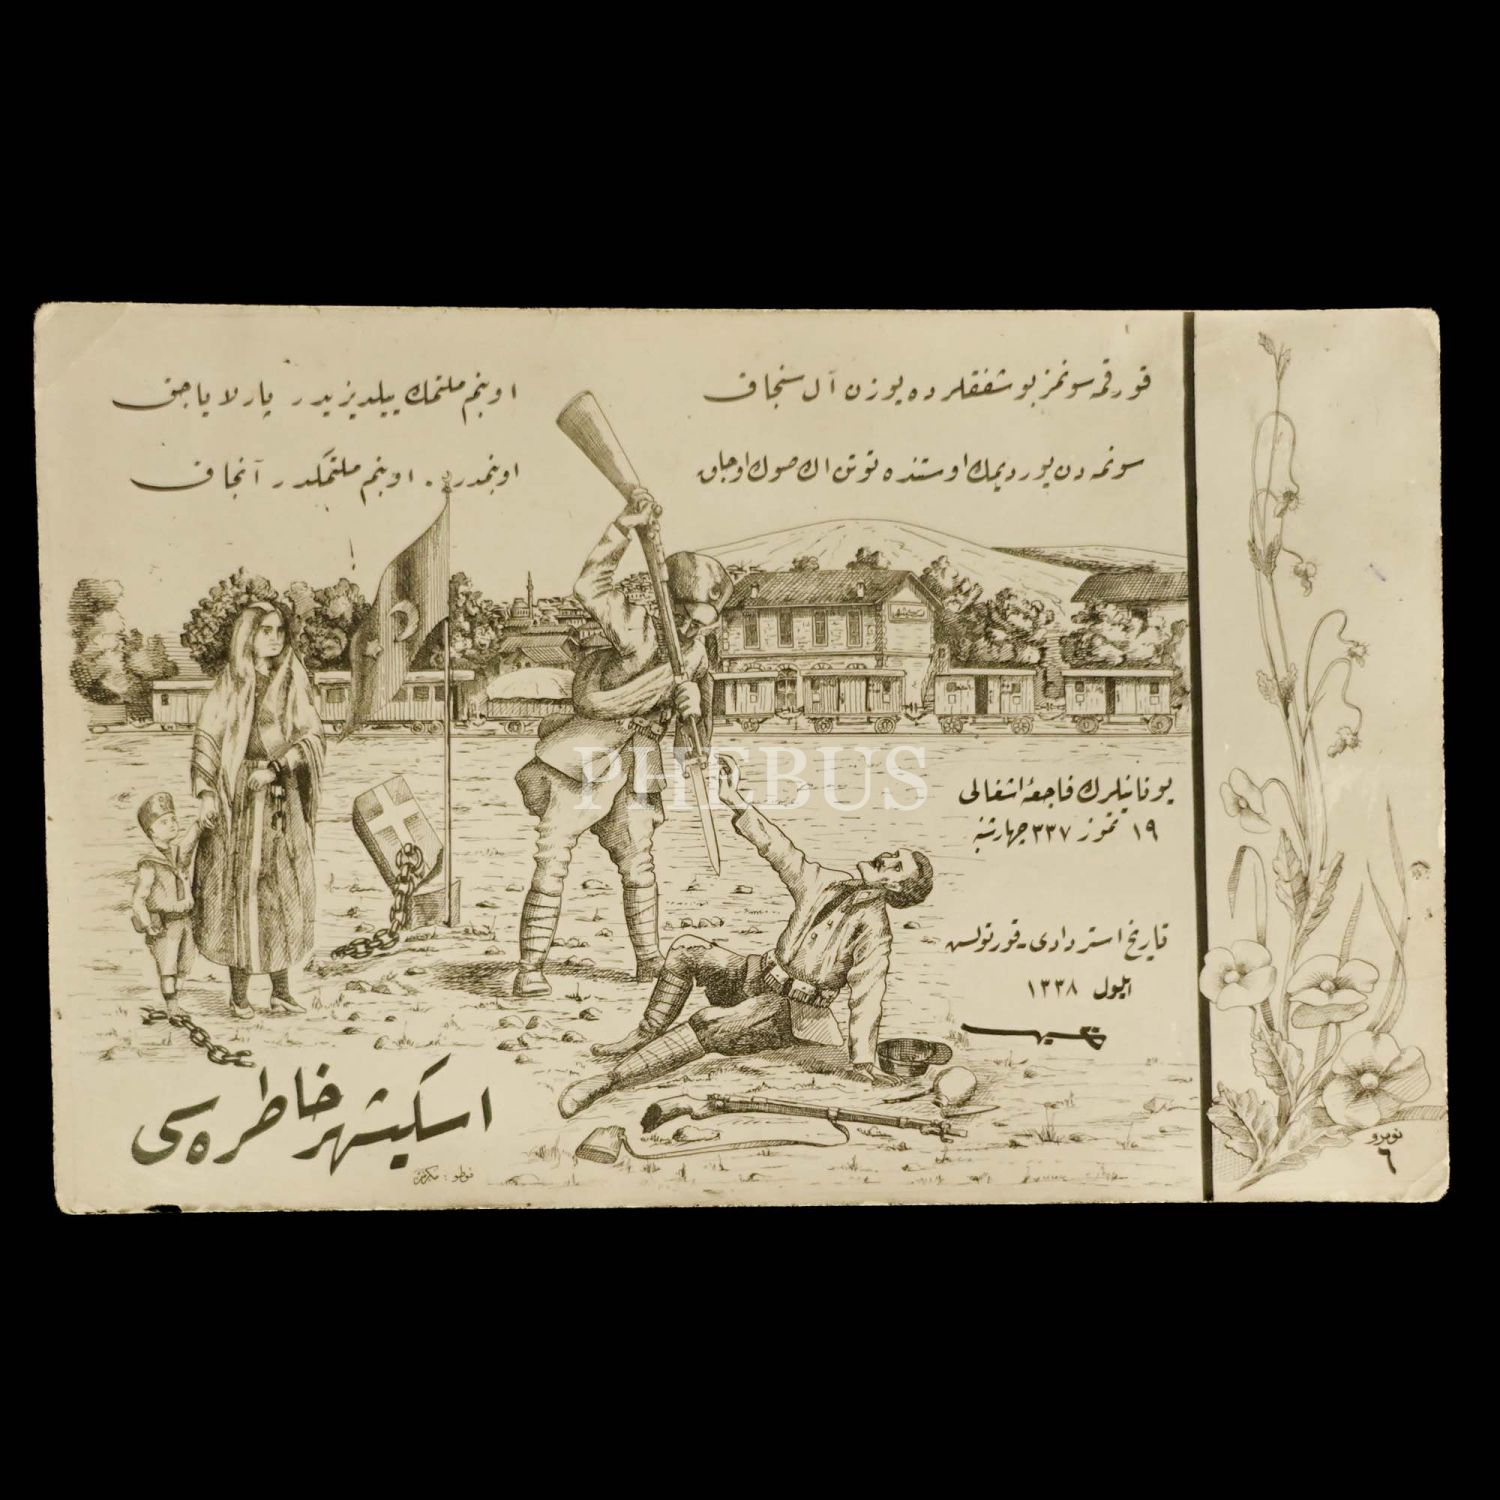 قورقمه سونمز بو شفقلرده یوزن آل سنجاق
سونمه دن یوردیمك اوستنده توتن اڭ صوڭ اوجاق
او بنم ملتمك ییلدیزیدر پارلایاجق
او بنمدر . او بنم ملتمكدر آنجاق
PHEBUS
یونانیلرك فاجعۀ اشغالی
١٩ تموز ٣٣٧ چهارشنبه
تاریخ استردادی - قورتولس
ایلول ١٣٣٨
اسكیشهر خاطره سی
فوطو :
نومرو
٦